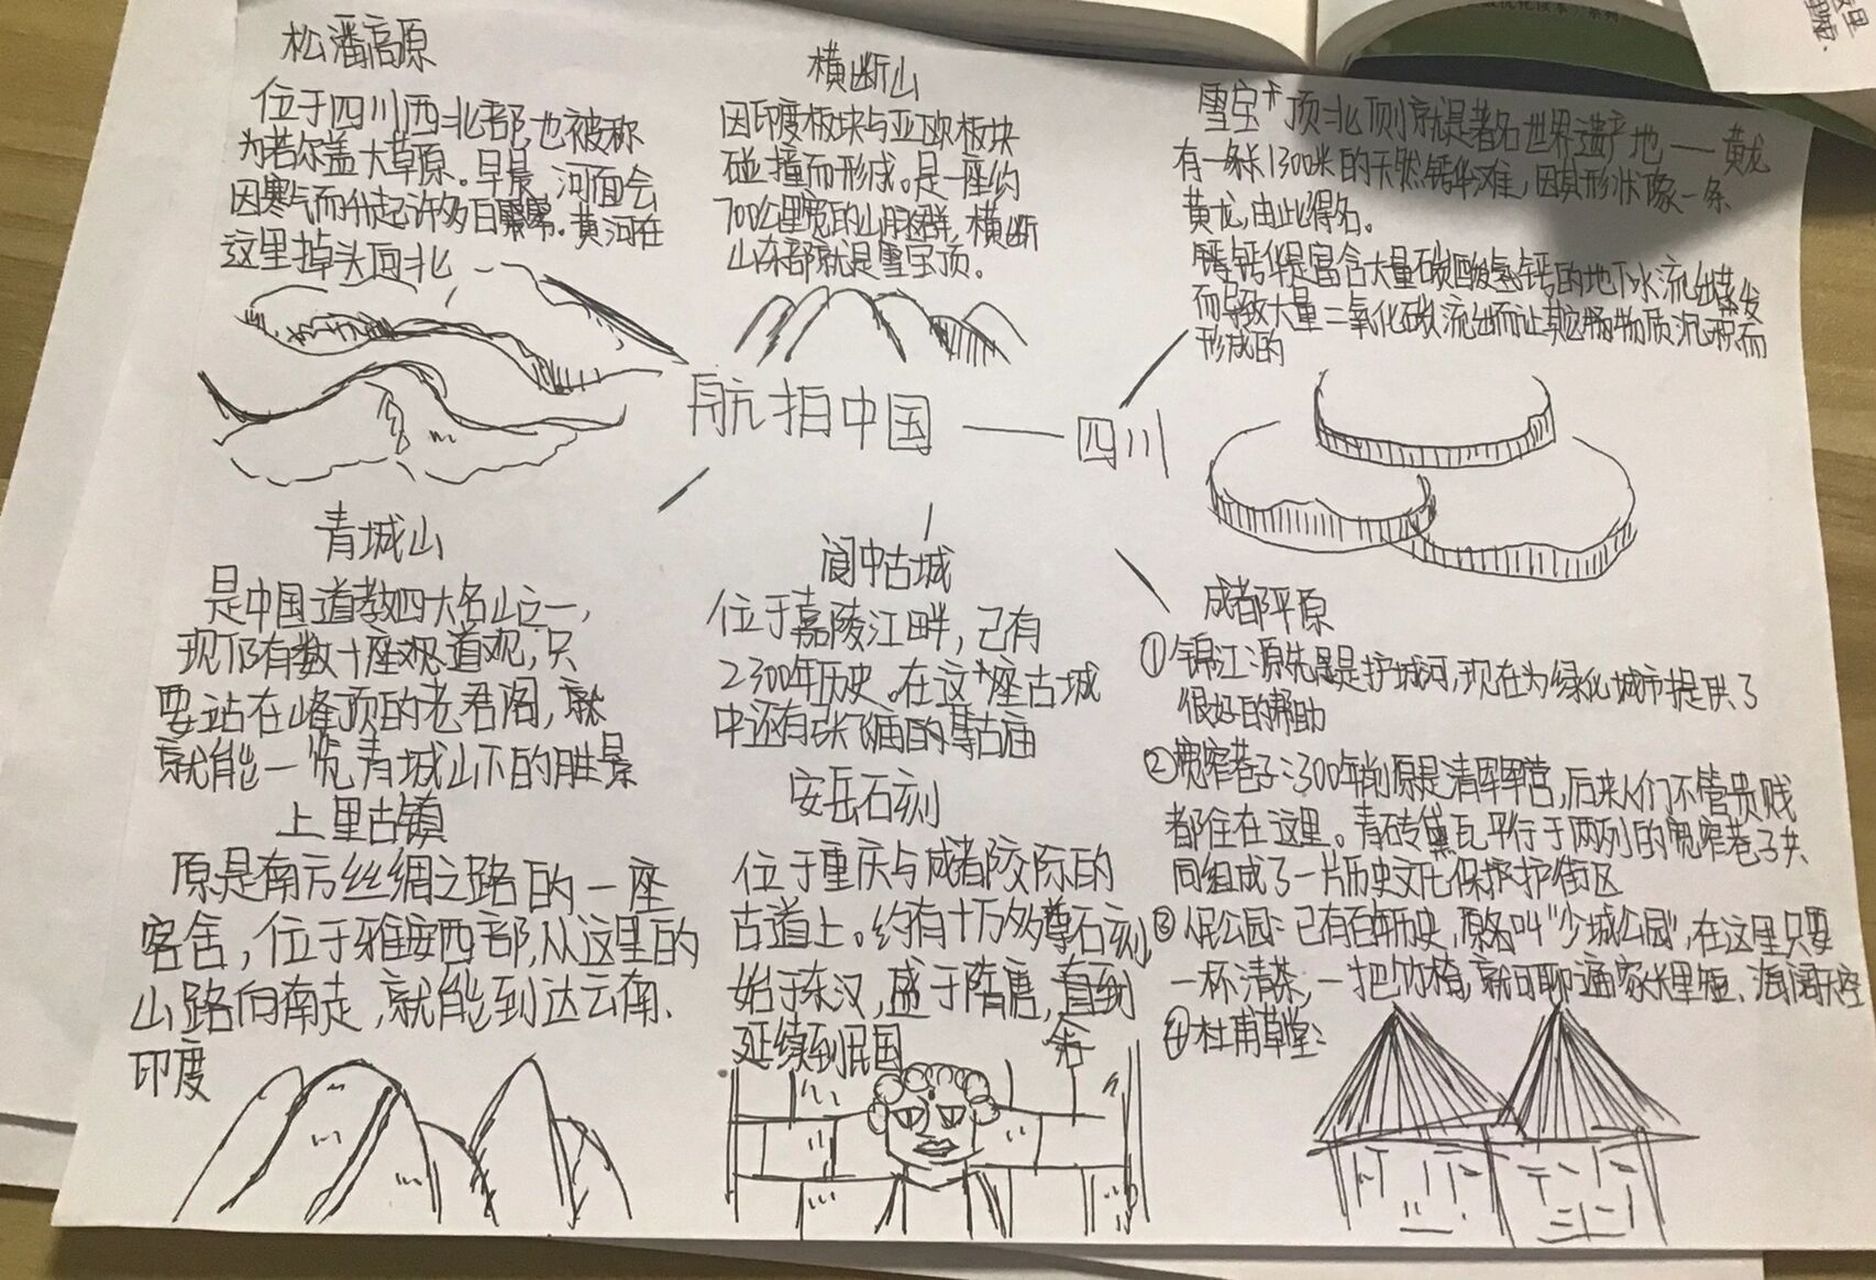 松潘高原
位于四川西北部,也被称
为若尔盖大草原。早晨,河面会
因寒气而升起许多白雾。黄河在
这里掉头向北
横断山
因印度板块与亚欧板块
碰撞而形成。是一座约
700公里宽的山脉群,横断
山东部就是雪宝顶。
雪宝顶北侧就是著名世界遗产地——黄龙
有一条长1300米的天然钙华滩,因其形状像一条
黄龙,由此得名。
钙华是富含大量碳酸氢钙的地下水流出蒸发
而导致大量二氧化碳流出而让其它物质沉积而
形成的
航拍中国——四川
青城山
是中国道教四大名山之一,
现仍有数十座道观,只
要站在峰顶的老君阁,就
就能一览青城山下的胜景
上里古镇
原是南方丝绸之路的一座
客舍,位于雅安西部,从这里的
山路向南走,就能到达云南、
印度
阆中古城
位于嘉陵江畔,已有
2300年历史。在这座古城
中还有张飞庙的等古庙
安岳石刻
位于重庆与成都交际的
古道上。约有十万多尊石刻
始于东汉,盛于隋唐,直到
延续到民国
成都平原
①锦江:原先是护城河,现在为绿化城市提供了
很好的帮助
②宽窄巷子:300年前原是清军军营,后来人们不管贵贱
都住在这里。青砖黛瓦平行于两列的宽窄巷子共
同组成了一片历史文化保护街区
③人民公园:已有百年历史,原名叫“少城公园”,在这里只要
一杯清茶,一把竹椅,就可聊遍家长里短、海阔天空
④杜甫草堂: